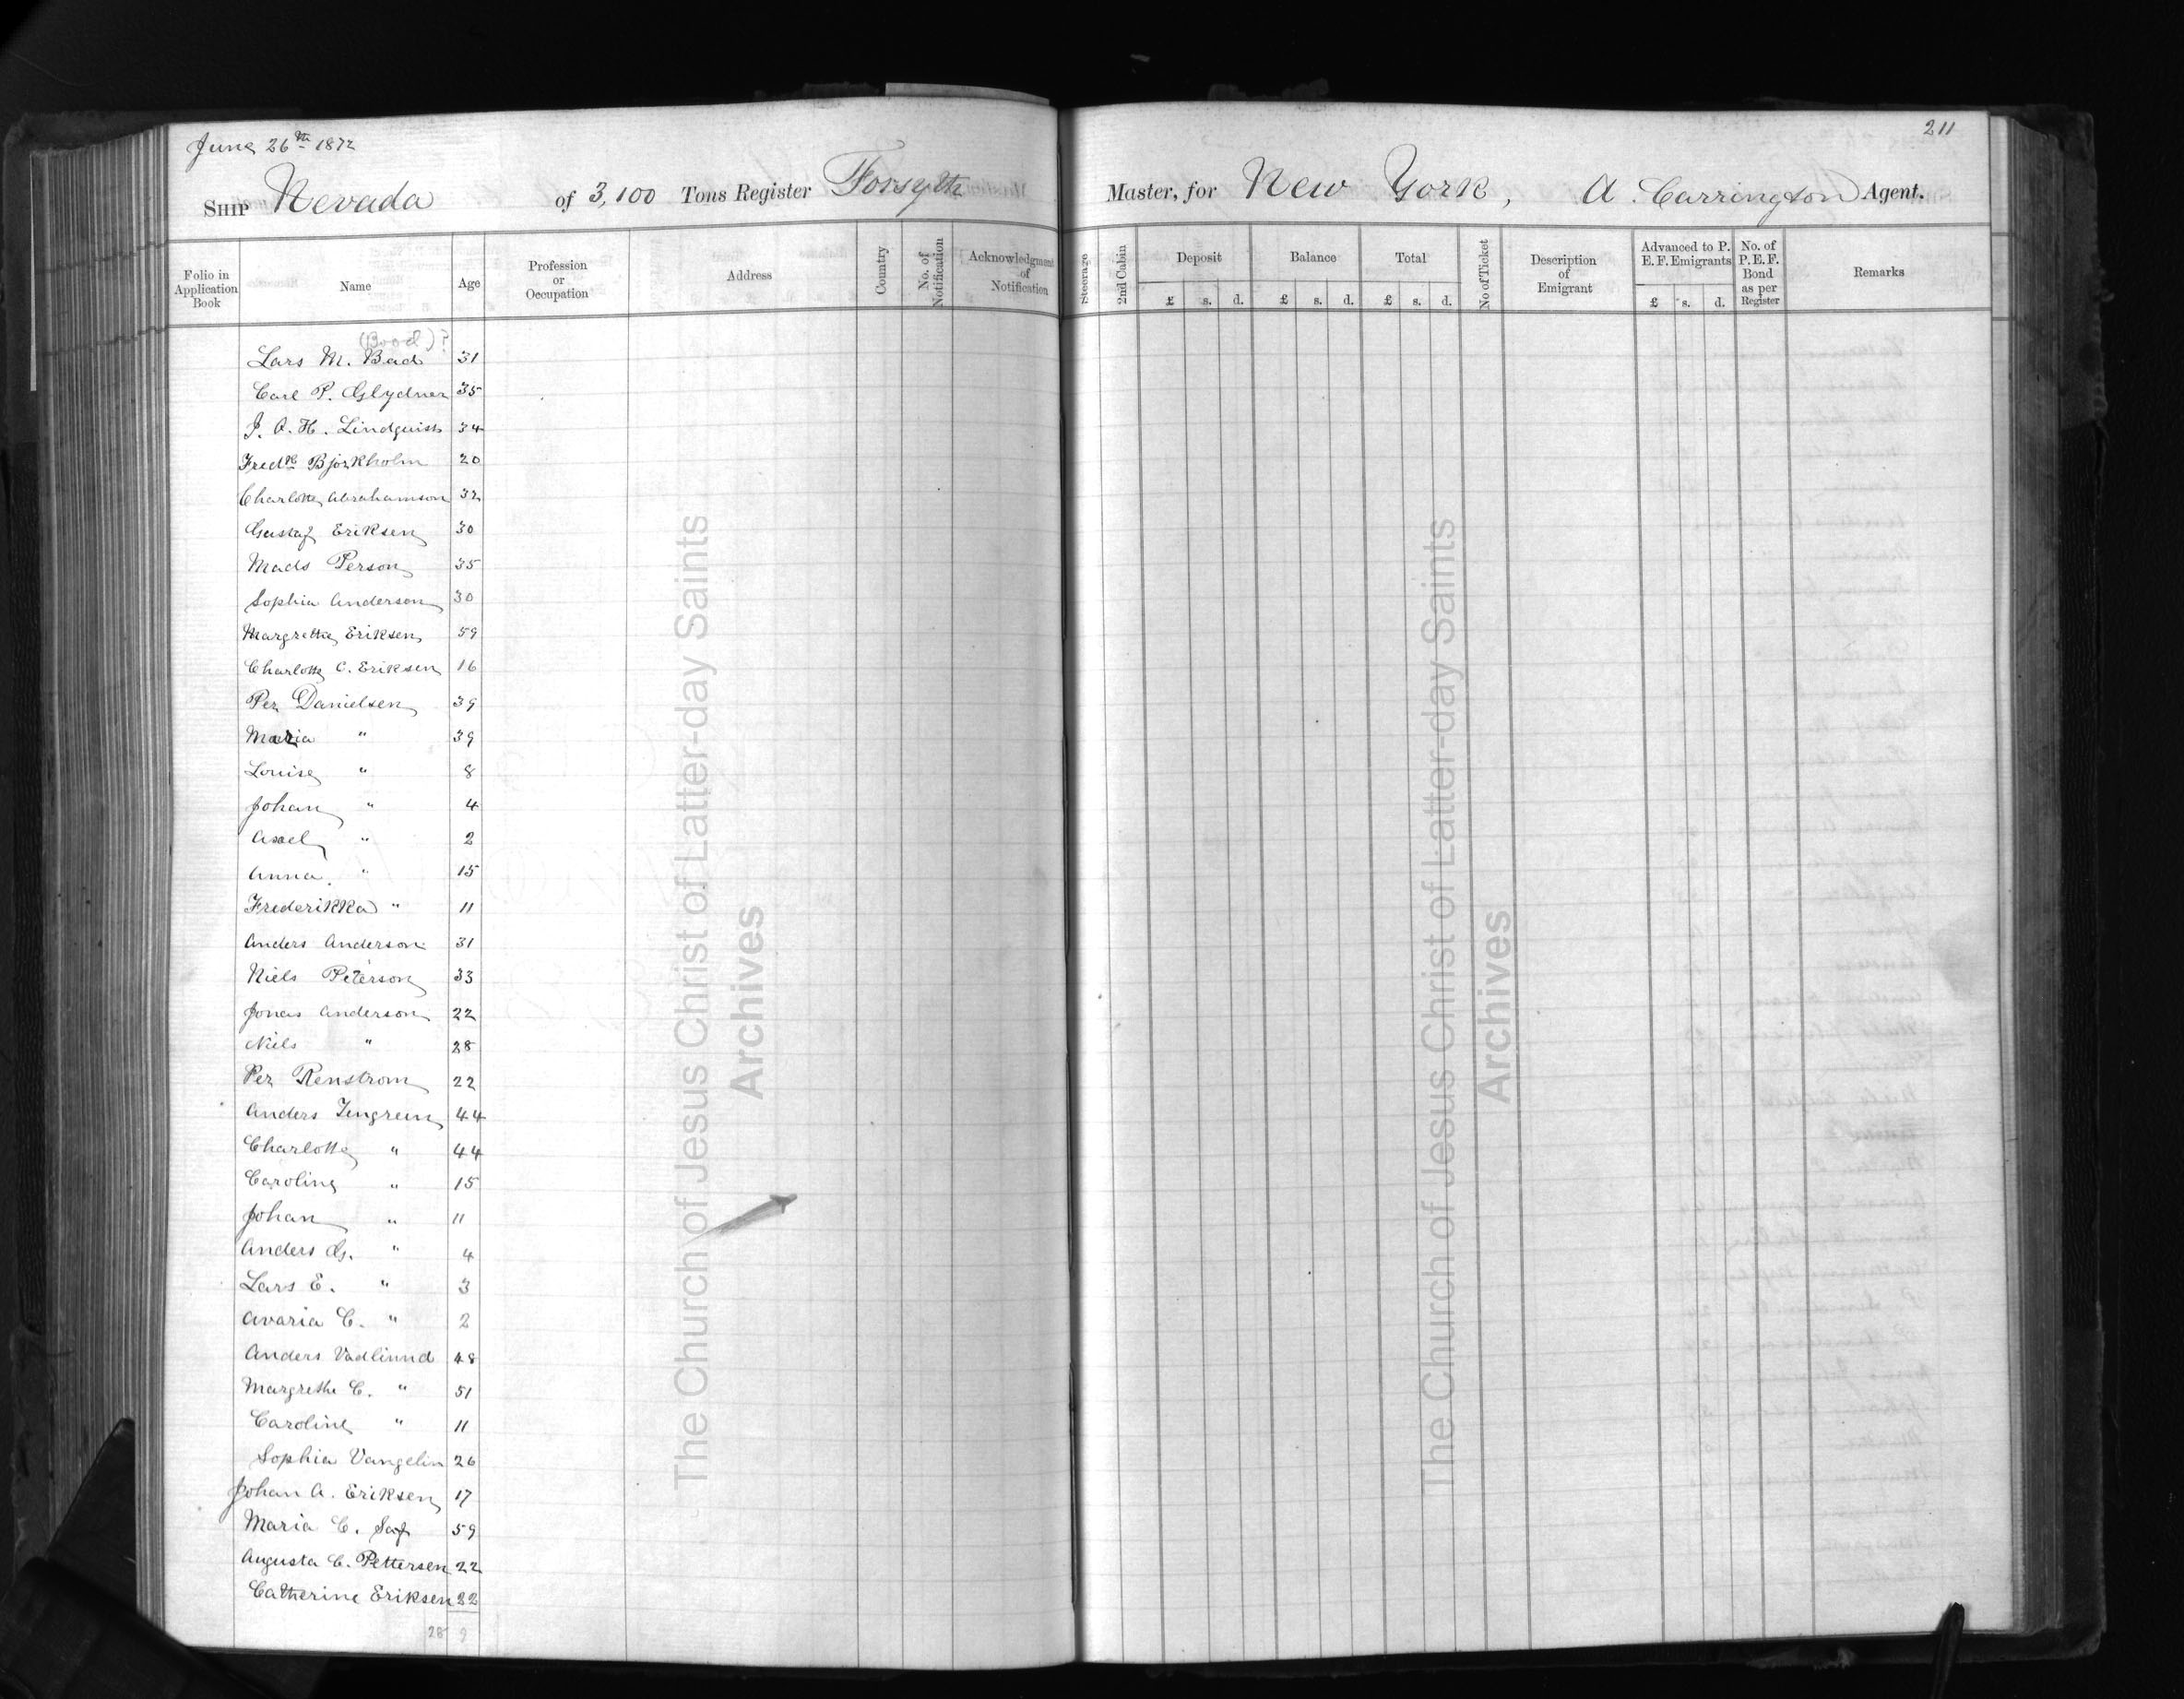 211
June 26th 1872
Ship Nevada of 3,100 Tons Register Forsyth Master, for New York, A. Carrington Agent.
Folio in Application Book Name Age Profession or Occupation Address Country No. of Notification Acknowledgment of Notification Steerage 2nd Cabin Deposit £ s. d. Balance £ s. d. Total £ s. d. No of Ticket Description of Emigrant Advanced to P. E. F. Emigrants £ s. d. No. of P. E. F. Bond as per Register Remarks
(Bood)?
Lars M. Bad 31
Carl P. Glydner 35
J. A. H. Lindquist 34
Fredk Bjorkholm 20
Charlotte Abrahamson 32
Gustaf Eriksen 30
Mads Person 35
Sophia Anderson 30
Margrethe Eriksen 59
Charlotte C. Eriksen 16
Per Danielsen 39
Maria " 39
Louise " 8
Johan " 4
Axel " 2
Anna " 15
Frederikka " 11
Anders Anderson 31
Niels Peterson 33
Jonas Anderson 22
Niels " 28
Per Renstrom 22
Anders Zengreen 44
Charlotte " 44
Caroline " 15
Johan " 11
Anders G. " 4
Lars E. " 3
Avaria C. " 2
Anders Vadlinnd 48
Margrethe C. " 51
Caroline " 11
Sophia Vangelin 26
Johan A. Eriksen 17
Maria C. Saf 59
Augusta C. Pettersen 22
Catherine Eriksen 22
28 9
The Church of Jesus Christ of Latter-day Saints
Archives
The Church of Jesus Christ of Latter-day Saints
Archives